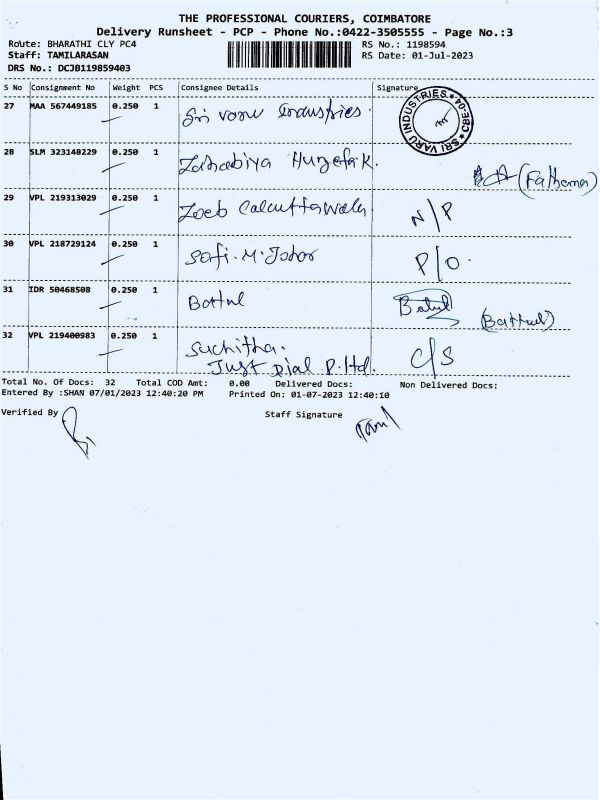 THE PROFESSIONAL COURIERS, COIMBATORE
Delivery Runsheet - PCP - Phone No.:0422-3505555 - Page No.:3
Route: BHARATHI CLY PC4 RS No.: 1198594
Staff: TAMILARASAN RS Date: 01-Jul-2023
DRS No.: DCJB119859403
S No Consignment No Weight PCS Consignee Details Signature
27 MAA 567449185 0.250 1 Sri varu Industries. SRI VARU INDUSTRIES * CBE-04 *
28 SLM 323148229 0.250 1 Zahabiya Huzefa K. (Fathema)
29 VPL 219313029 0.250 1 Zoeb Calcuttawala N/P
30 VPL 218729124 0.250 1 Safi. M. Johar P/O.
31 IDR 50468508 0.250 1 Battul Batul (Battul)
32 VPL 219400983 0.250 1 Suchitha. C/S
Just Dial P. ltd.
Total No. Of Docs: 32 Total COD Amt: 0.00 Delivered Docs: Non Delivered Docs:
Entered By :SHAN 07/01/2023 12:40:20 PM Printed On: 01-07-2023 12:40:10
Verified By Staff Signature Tamil